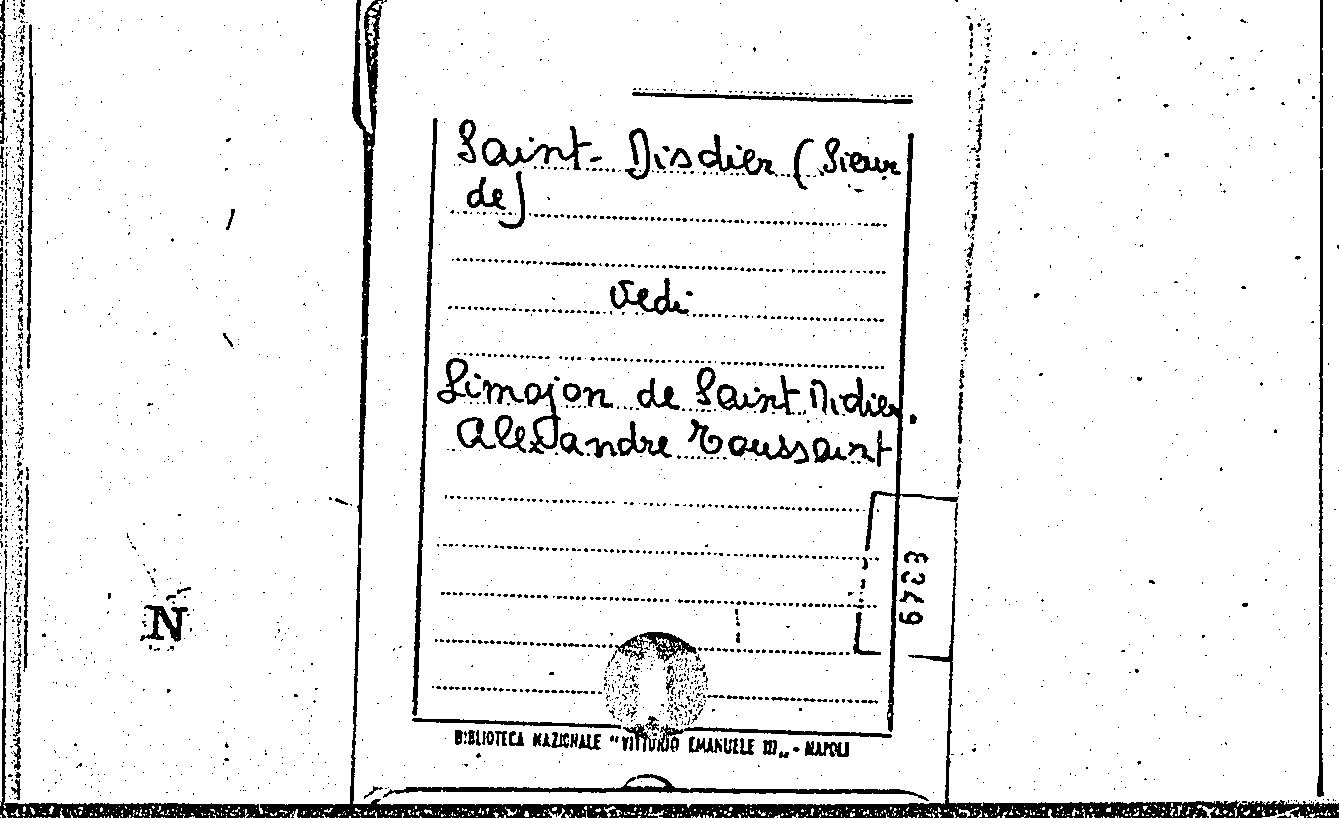 Saint-Disdier (Sieur
de)
vedi
Limojon de Saint Didier.
Alexandre Toussaint
N
BIBLIOTECA NAZIONALE "VITTORIO EMANUELE III„ - NAPOLI